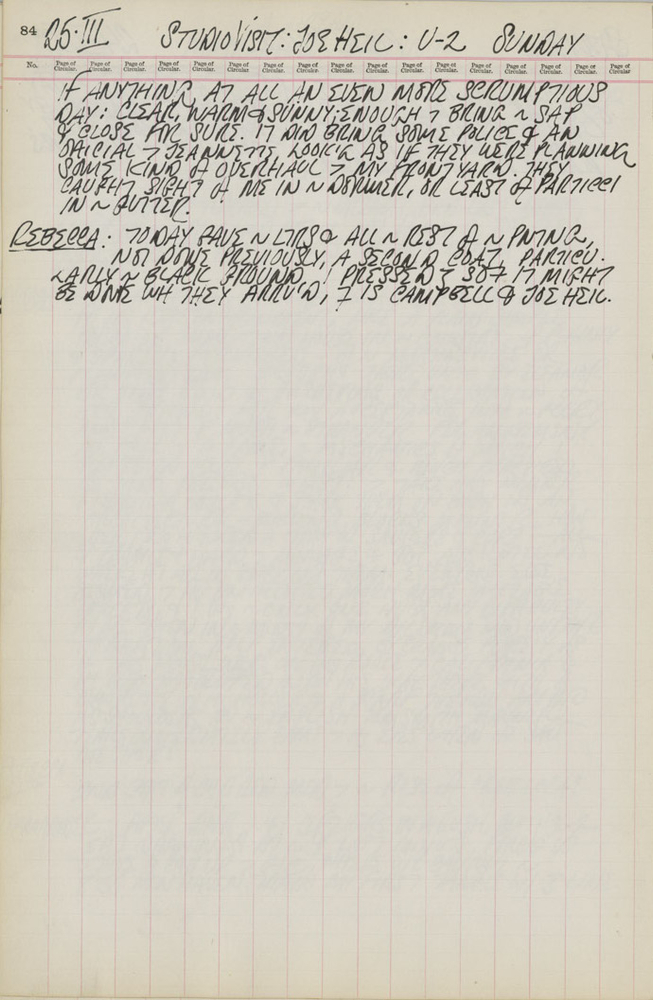 84 25·III STUDIO VISIT: JOE HEIL: U-2 SUNDAY
No. Page of Circular. Page of Circular. Page of Circular. Page of Circular. Page of Circular. Page of Circular. Page of Circular. Page of Circular. Page of Circular. Page of Circular. Page of Circular. Page of Circular. Page of Circular. Page of Circular. Page of Circular. Page of Circular. Page of Circular.
IF ANYTHING, AT ALL AN EVEN MORE SCRUMPTIOUS
DAY: CLEAR, WARM & SUNNY; ENOUGH 7 BRING ~ SAP
& CLOSE FOR SURE. IT DID BRING SOME POLICE & AN
7 JEANNETTE, LOOK'G AS IF THEY WERE PLANNING
SOME KIND OF OVERHAUL 7 MY FRONT YARD. THEY
CAUGHT SIGHT OF ME IN ~ DORMER, OR LEAST OF PARTICCI
IN ~ GUTTER.
REBECCA: TODAY GAVE ~ LTRS & ALL ~ REST OF ~ PNTNG,
NOT DONE PREVIOUSLY, A SECOND COAT, PARTICU-
LARLY ~ BLACK GROUND. I PRESSED SO IT MIGHT
BE DONE WH THEY ARRIV'D, IS CAMPBELL & JOE HEIL.